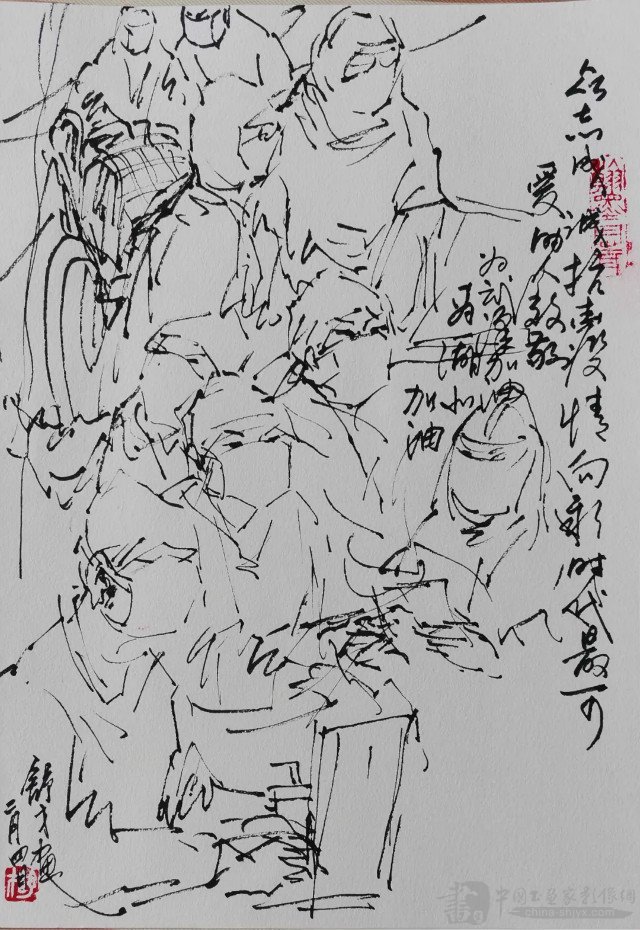 众志成城抗击疫情向新时代最可
爱的人致敬
为武汉加油
为湖北
加油
舒才画
二月四日
中国书画家影像网
china-shjyx.com